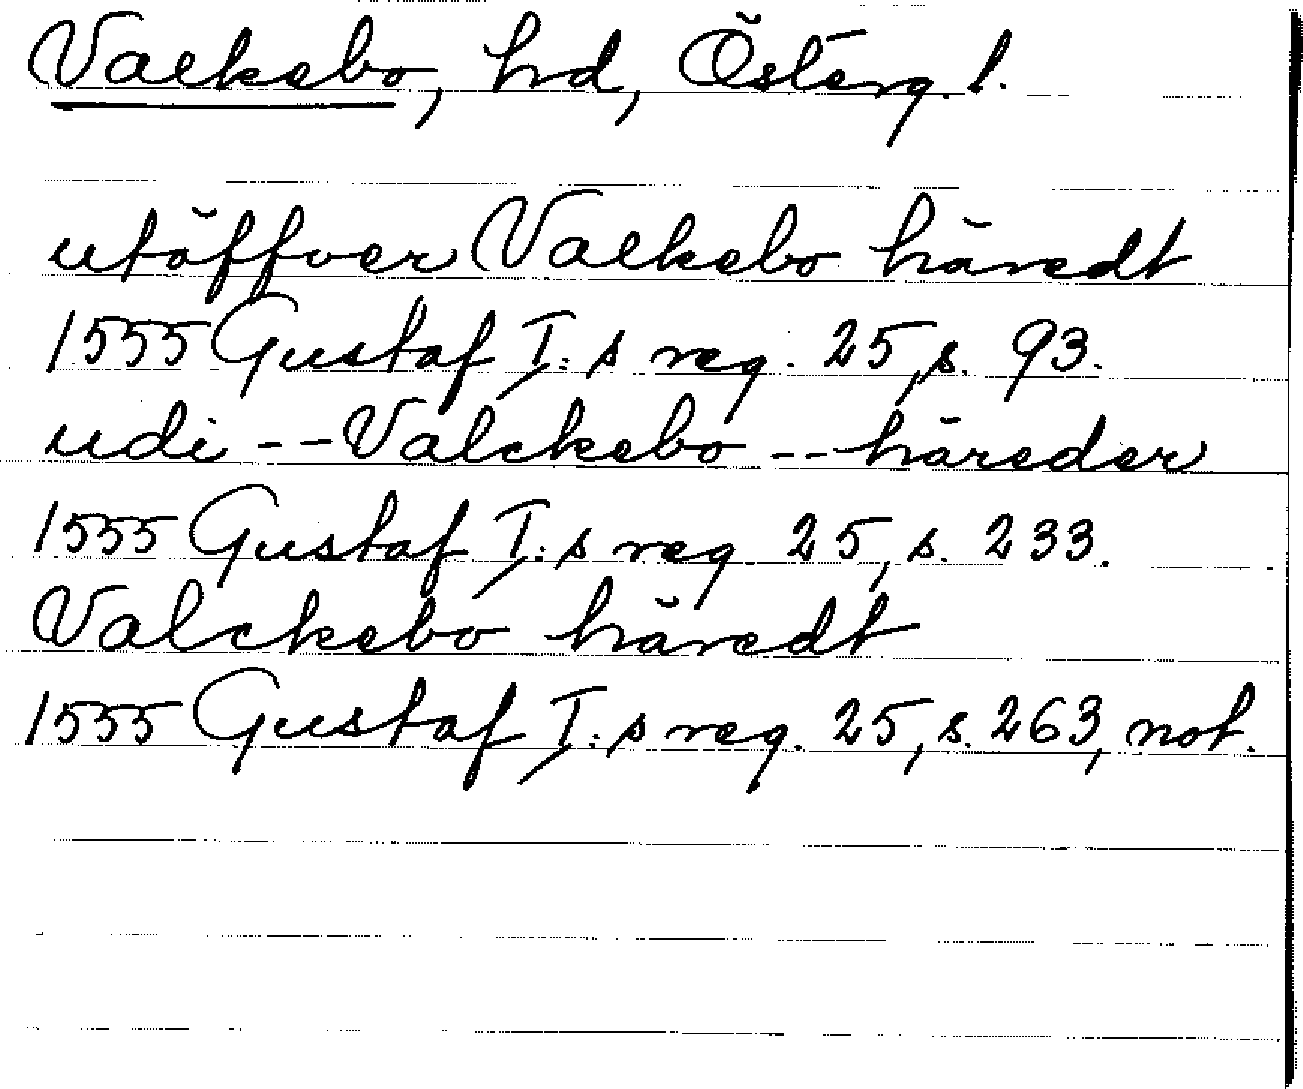 Valkebo, hd, Österg. l.
utöffver Valkebo häredt
1555 Gustaf I:s reg. 25, s. 93.
udi -- Valckebo -- häreder
1555 Gustaf I:s reg 25, s. 233.
Valckebo häredt
1555 Gustaf I:s reg. 25, s. 263, not.